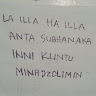 LA ILLA HA ILLA
ANTA SUBHANAKA
INNI KUNTU
MINADZOLIMIN